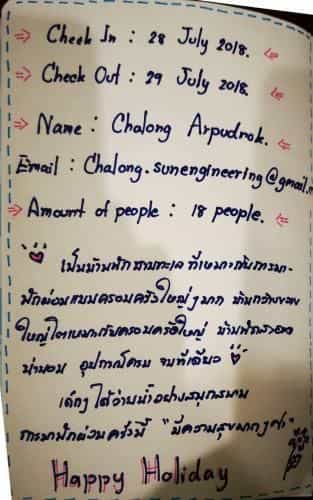 Check In : 28 July 2018.
Check Out : 29 July 2018.
Name : Chalong Arpudrok.
Email : Chalong.sunengineering@gmail.
Amount of people : 18 people.
เป็นบ้านพักชายทะเล ที่เหมาะกับการมา
พักผ่อนแบบครอบครัวใหญ่ๆมาก บ้านกว้าง
ใหญ่โตเหมาะกับครอบครัวใหญ่ บ้านพักสะอาด
น่านอน อุปกรณ์ครบ จบที่เดียว
เด็กๆ ได้ว่ายน้ำอย่างสนุกสนาน
การมาพักผ่อนครั้งนี้ "มีความสุขมากๆค่ะ"
Happy Holiday